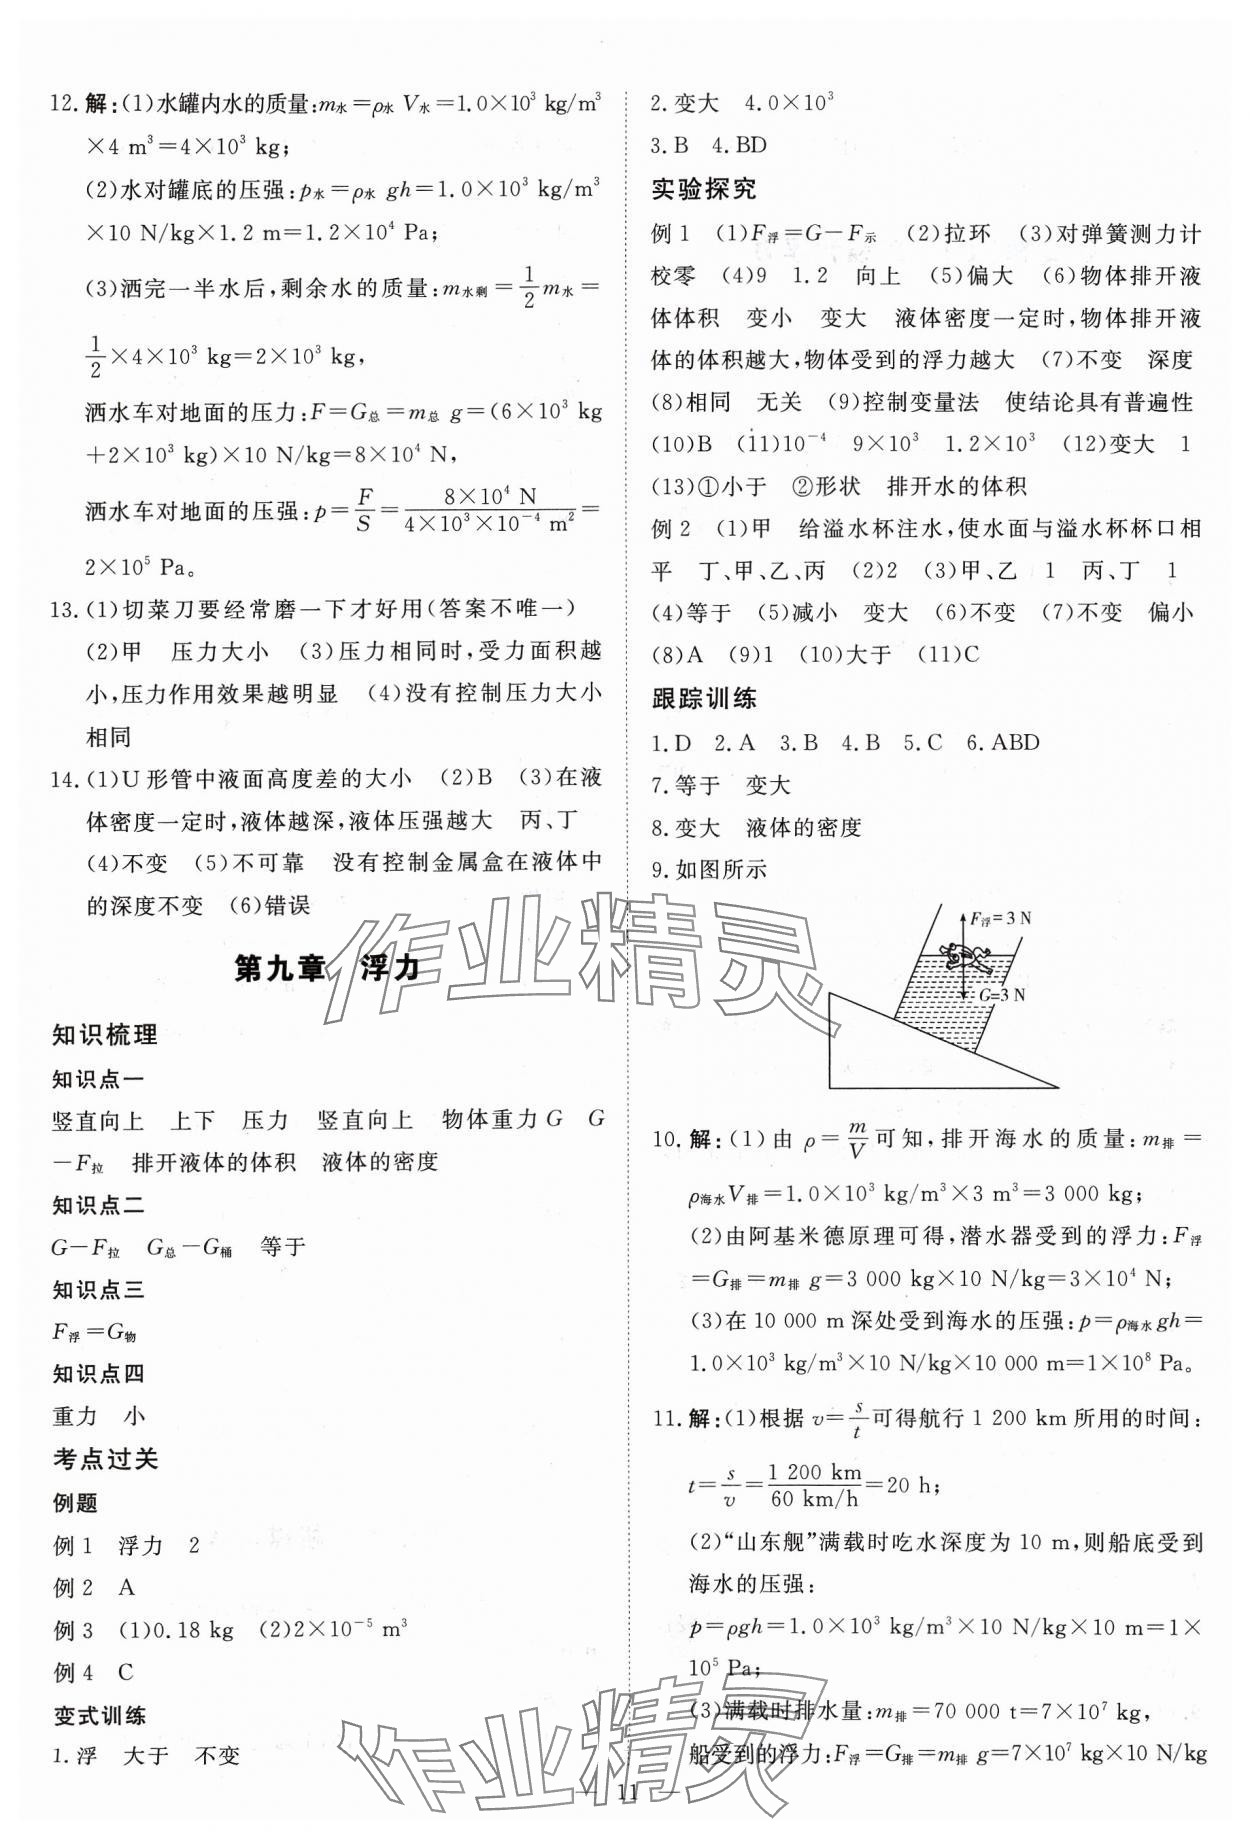 12. 解:(1)水罐内水的质量:m水=ρ水 V水=1.0×10³ kg/m³
×4 m³=4×10³ kg;
(2)水对罐底的压强:p水=ρ水 gh=1.0×10³ kg/m³
×10 N/kg×1.2 m=1.2×10⁴ Pa;
(3)洒完一半水后,剩余水的质量:m水剩=1/2 m水=
1/2×4×10³ kg=2×10³ kg,
洒水车对地面的压力:F=G总=m总 g=(6×10³ kg
+2×10³ kg)×10 N/kg=8×10⁴ N,
洒水车对地面的压强:p=F/S=8×10⁴ N/4×10³×10⁻⁴ m²=
2×10⁵ Pa。
13. (1)切菜刀要经常磨一下才好用(答案不唯一)
(2)甲 压力大小 (3)压力相同时,受力面积越
小,压力作用效果越明显 (4)没有控制压力大小
相同
14. (1)U形管中液面高度差的大小 (2)B (3)在液
体密度一定时,液体越深,液体压强越大 丙、丁
(4)不变 (5)不可靠 没有控制金属盒在液体中
的深度不变 (6)错误
第九章 浮力
知识梳理
知识点一
竖直向上 上下 压力 竖直向上 物体重力G G
-F拉 排开液体的体积 液体的密度
知识点二
G-F拉 G总-G桶 等于
知识点三
F浮=G物
知识点四
重力 小
考点过关
例题
例1 浮力 2
例2 A
例3 (1)0.18 kg (2)2×10⁻⁵ m³
例4 C
变式训练
1. 浮 大于 不变
2. 变大 4.0×10³
3. B 4. BD
实验探究
例1 (1)F浮=G-F示 (2)拉环 (3)对弹簧测力计
校零 (4)9 1.2 向上 (5)偏大 (6)物体排开液
体体积 变小 变大 液体密度一定时,物体排开液
体的体积越大,物体受到的浮力越大 (7)不变 深度
(8)相同 无关 (9)控制变量法 使结论具有普遍性
(10)B (11)10⁻⁴ 9×10³ 1.2×10³ (12)变大 1
(13)①小于 ②形状 排开水的体积
例2 (1)甲 给溢水杯注水,使水面与溢水杯杯口相
平 丁、甲、乙、丙 (2)2 (3)甲、乙 1 丙、丁 1
(4)等于 (5)减小 变大 (6)不变 (7)不变 偏小
(8)A (9)1 (10)大于 (11)C
跟踪训练
1. D 2. A 3. B 4. B 5. C 6. ABD
7. 等于 变大
8. 变大 液体的密度
9. 如图所示
F浮=3 N
G=3 N
10. 解:(1)由 ρ=m/V可知,排开海水的质量:m排=
ρ海水V排=1.0×10³ kg/m³×3 m³=3 000 kg;
(2)由阿基米德原理可得,潜水器受到的浮力:F浮
=G排=m排 g=3 000 kg×10 N/kg=3×10⁴ N;
(3)在10 000 m深处受到海水的压强:p=ρ海水gh=
1.0×10³ kg/m³×10 N/kg×10 000 m=1×10⁸ Pa。
11. 解:(1)根据 v=s/t可得航行1 200 km所用的时间:
t=s/v=1 200 km/60 km/h=20 h;
(2)“山东舰”满载时吃水深度为10 m,则船底受到
海水的压强:
p=ρgh=1.0×10³ kg/m³×10 N/kg×10 m=1×
10⁵ Pa;
(3)满载时排水量:m排=70 000 t=7×10⁷ kg,
船受到的浮力:F浮=G排=m排 g=7×10⁷ kg×10 N/kg
— 11 —
作业精灵
作业精灵